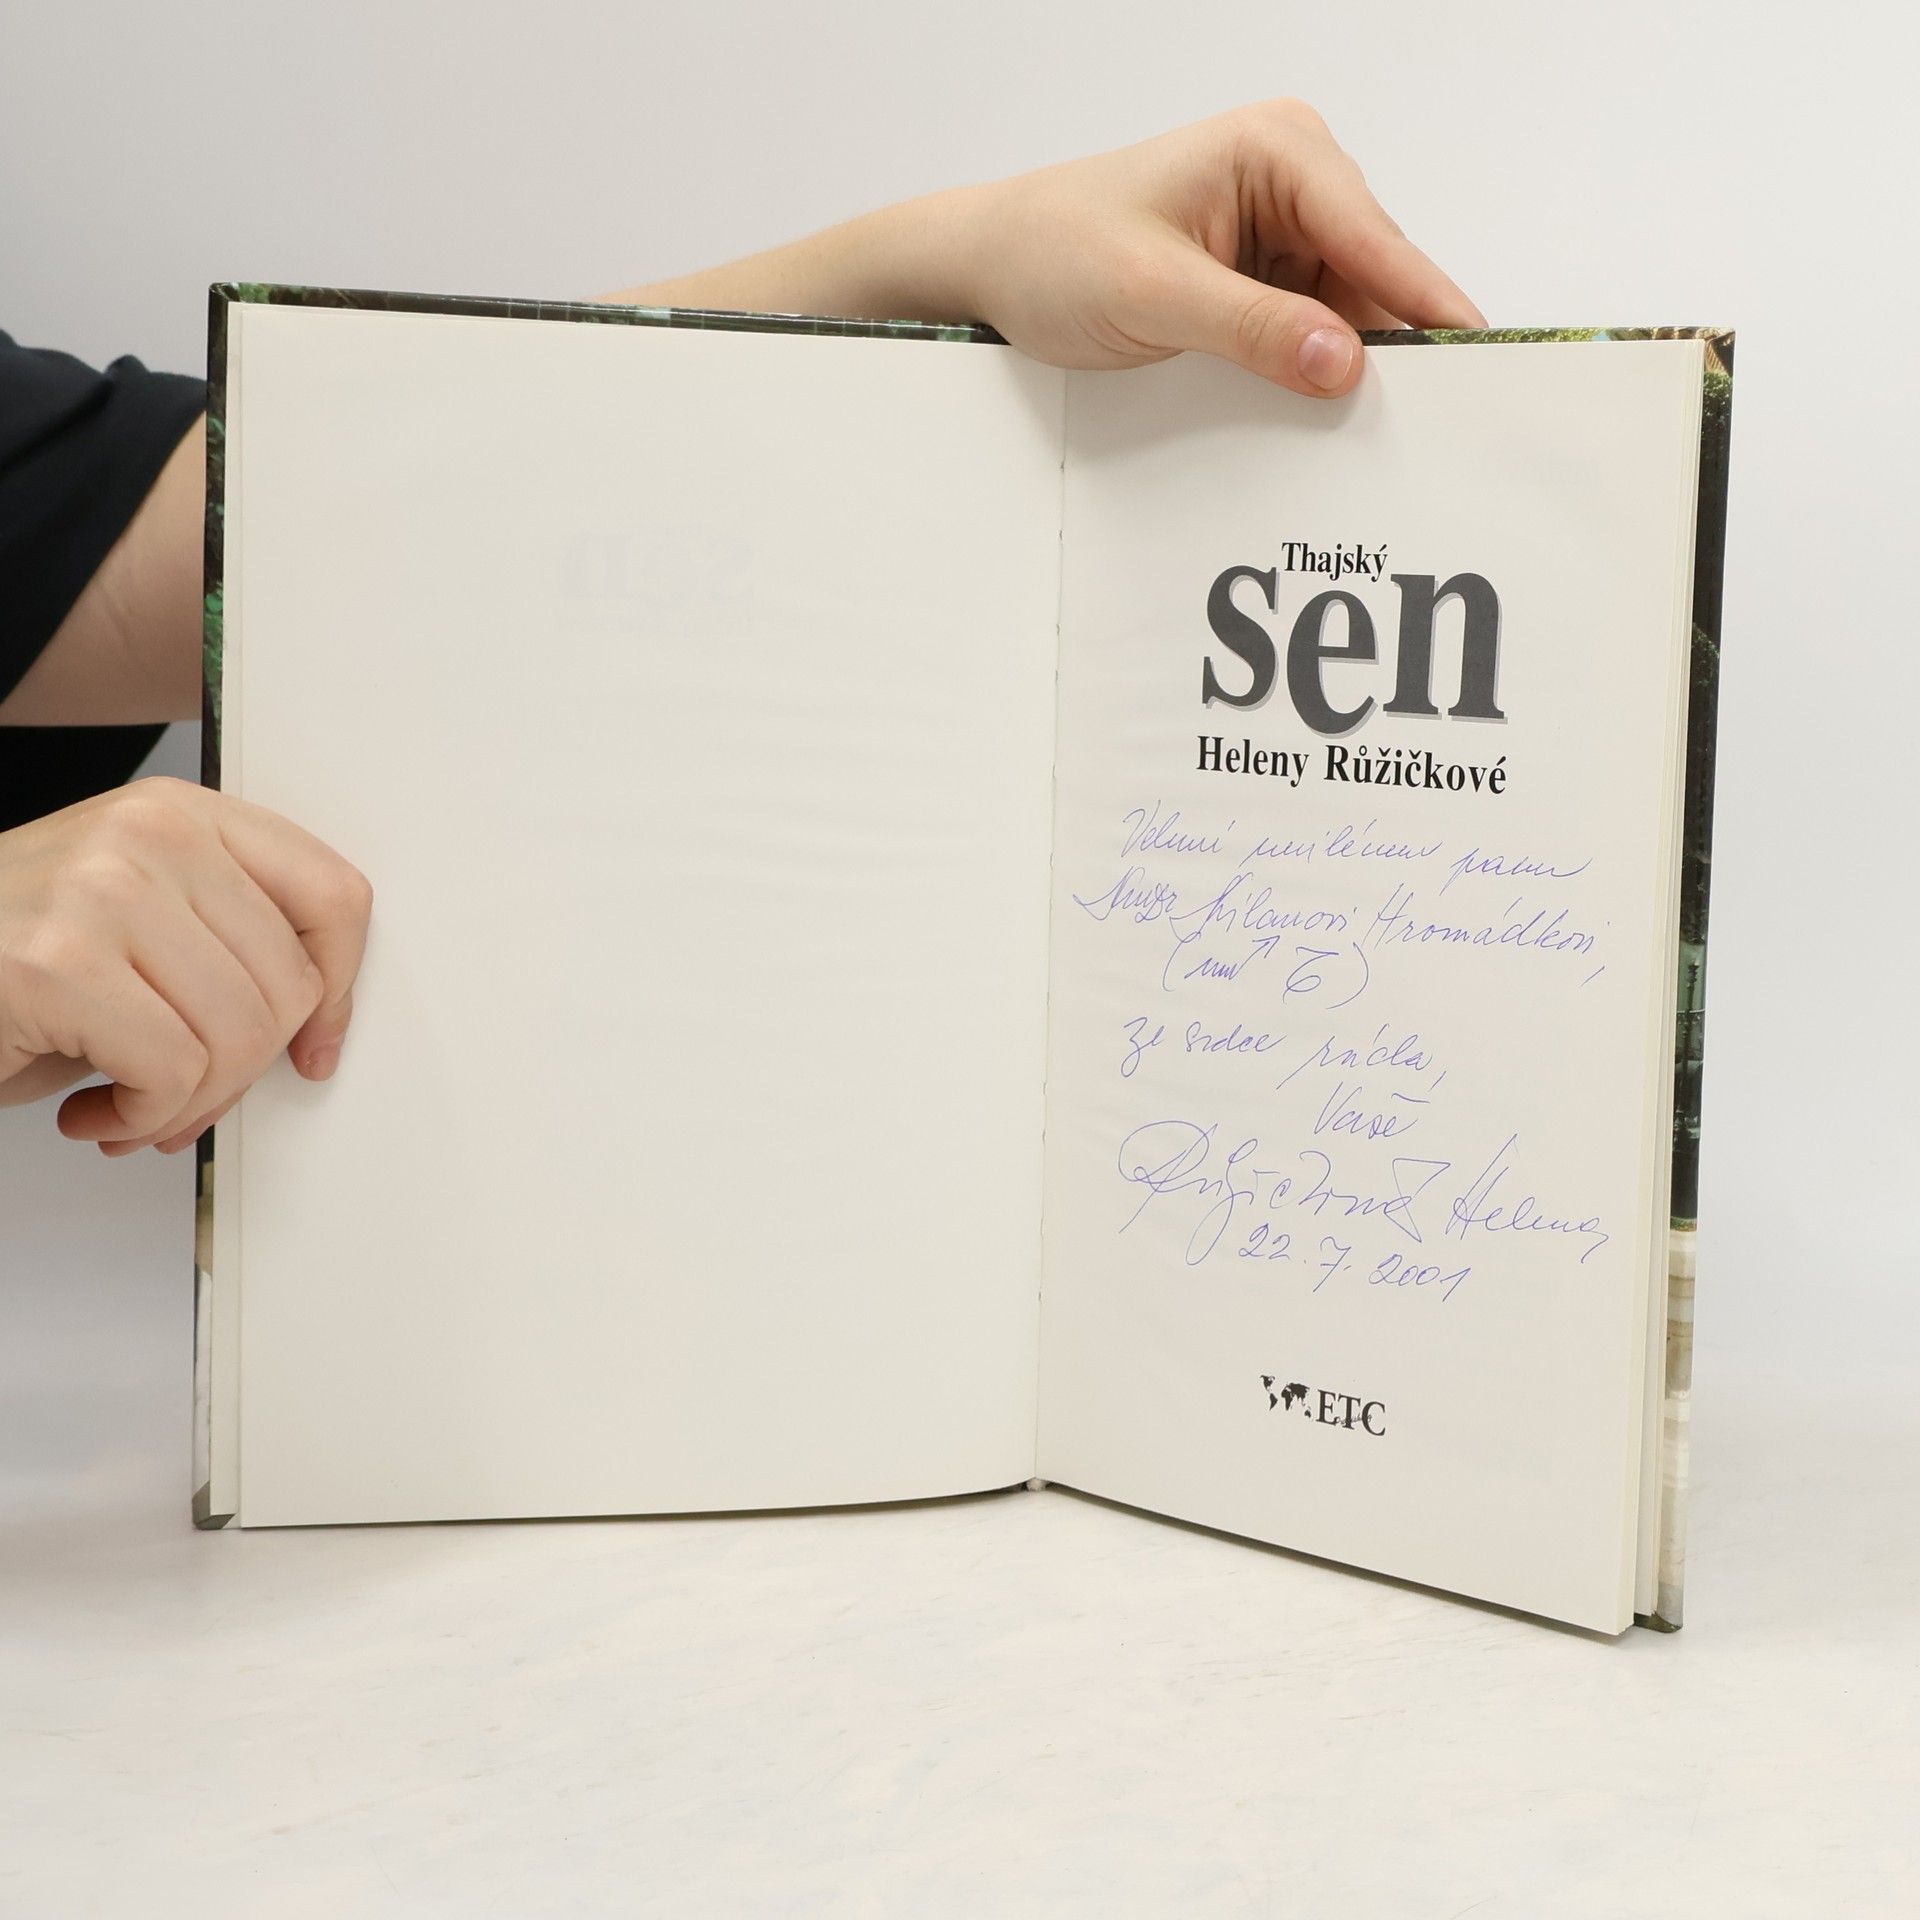 Thajský
sen
Heleny Růžičkové
Velmi milému panu
MUDr Milanovi Hromádkovi,
ze srdce ráda,
Vaše
Růžičková Helena
22. 7. 2001
ETC